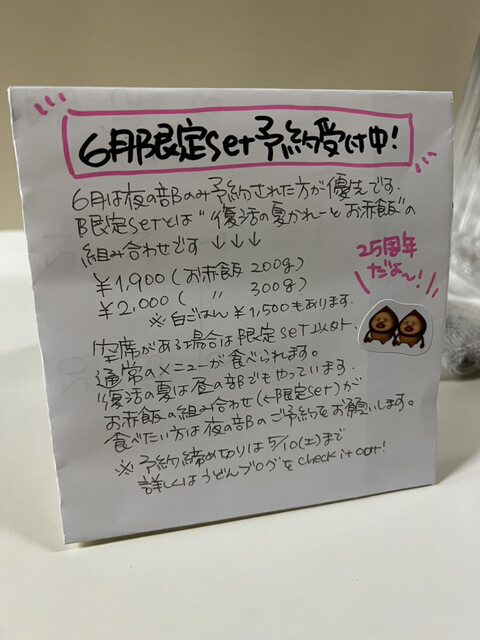 6月限定set予約受付中!
6月は夜の部のみ予約された方が優先です.
限定setとは"復活の夏かれーとお赤飯"の
組み合わせです↓↓↓
¥1,900(お赤飯 200g)
¥2,000( 〃 300g)
※白ごはん¥1,500もあります.
25周年
だよ〜!
空席がある場合は限定set以外、
通常のメニューが食べられます。
"復活の夏は昼の部でもやっています.
お赤飯の組み合わせ(←限定set)が
食べたい方は夜の部のご予約をお願いします。
※予約締め切りは5/10(土)まで
詳しくはうどんブログをcheck it out!